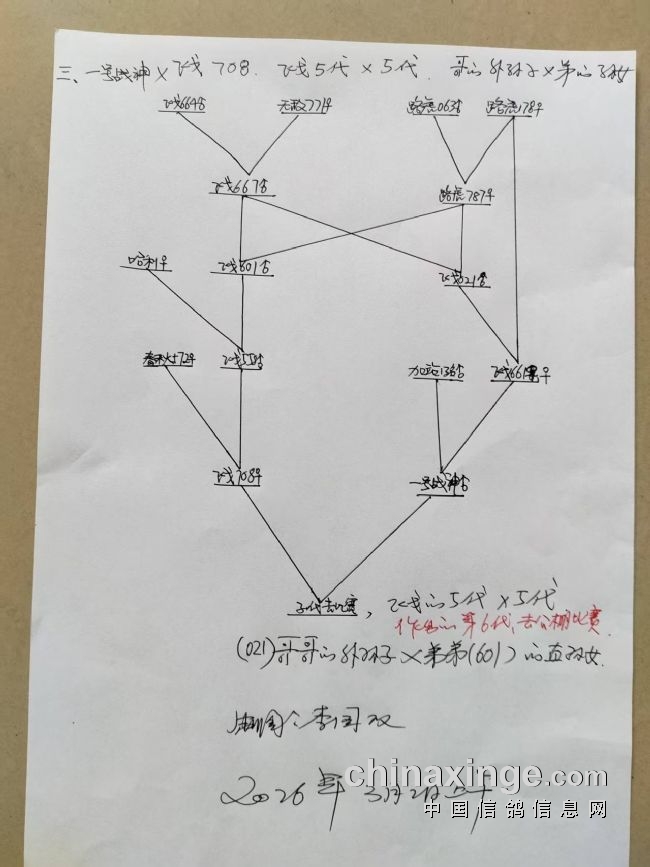 三、一号战神 × 飞戈708. 飞戈5代 × 5代. 哥的外孙子 × 弟的孙女
飞戈664♂ 无敌771♀ 路虎063♂ 路虎178♀
飞戈667♂ 路虎787♀
哈利♀ 飞戈601♂ 飞戈021♂
春秋572♀ 加路136♂ 飞戈661♀
飞戈708♀ 一号战神♂
子代去比赛, 飞戈的5代×5代
作出的第6代,去公棚比赛.
(021)哥哥的外孙子×弟弟(601)的直孙女.
制图:李国双
2026年3月2日
chinaxinge.com
中国信鸽信息网